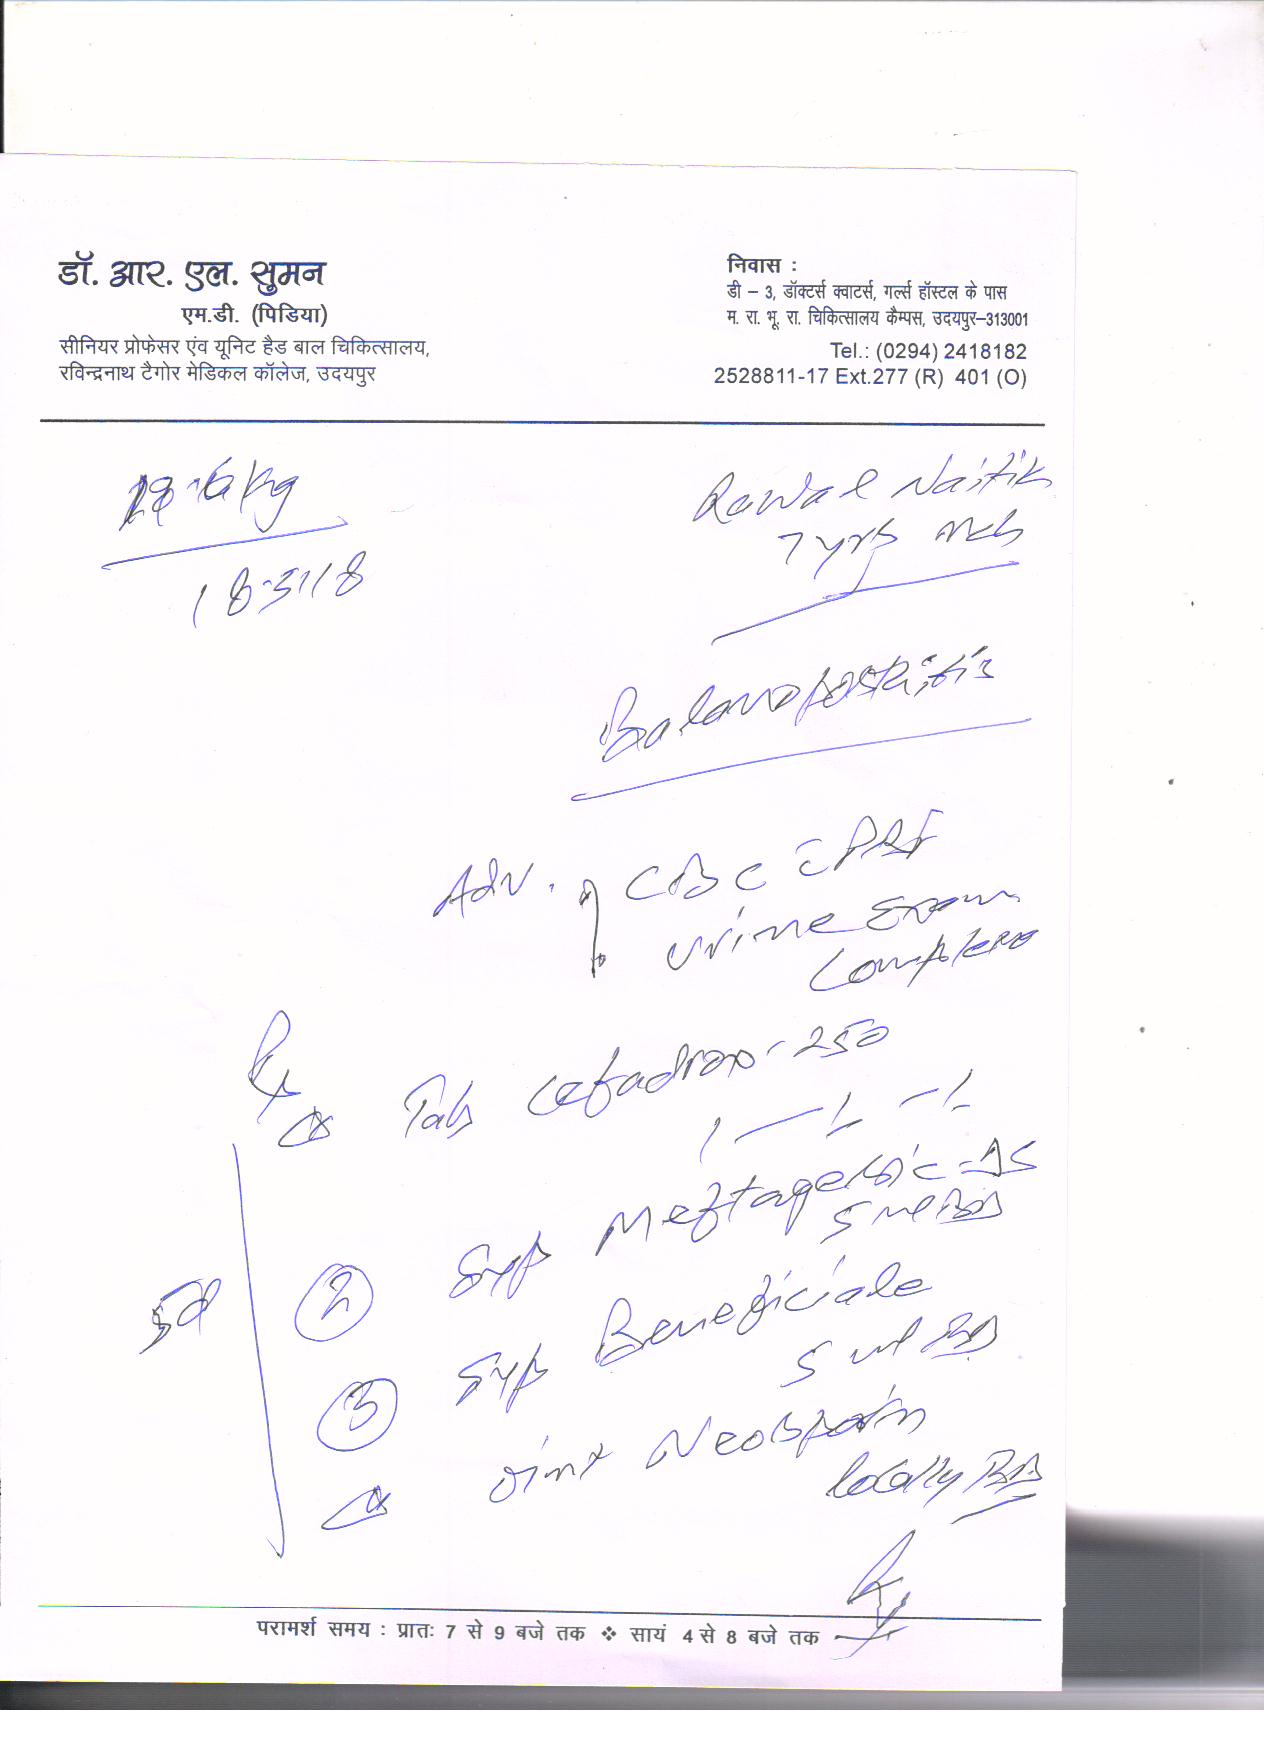 डॉ. आर. एल. सुमन
एम.डी. (पिडिया)
सीनियर प्रोफेसर एंव यूनिट हैड बाल चिकित्सालय,
रविन्द्रनाथ टैगोर मेडिकल कॉलेज, उदयपुर
निवास :
डी – 3, डॉक्टर्स क्वाटर्स, गर्ल्स हॉस्टल के पास
म. रा. भू. रा. चिकित्सालय कैम्पस, उदयपुर–313001
Tel.: (0294) 2418182
2528811-17 Ext.277 (R) 401 (O)
Rawal Naitik
7 yrs
kg
Balanoposthitis
Adv. CBC
Urine Exam
Complete
Rx
Tab Cefadrox - 250
1 — 1 — 1
2 Syp Meftagesic - DS
5 ml BD
3 Syp Beneficiale
5 ml BD
oint Neosporin
locally BD
5d
परामर्श समय : प्रातः 7 से 9 बजे तक ❖ सायं 4 से 8 बजे तक